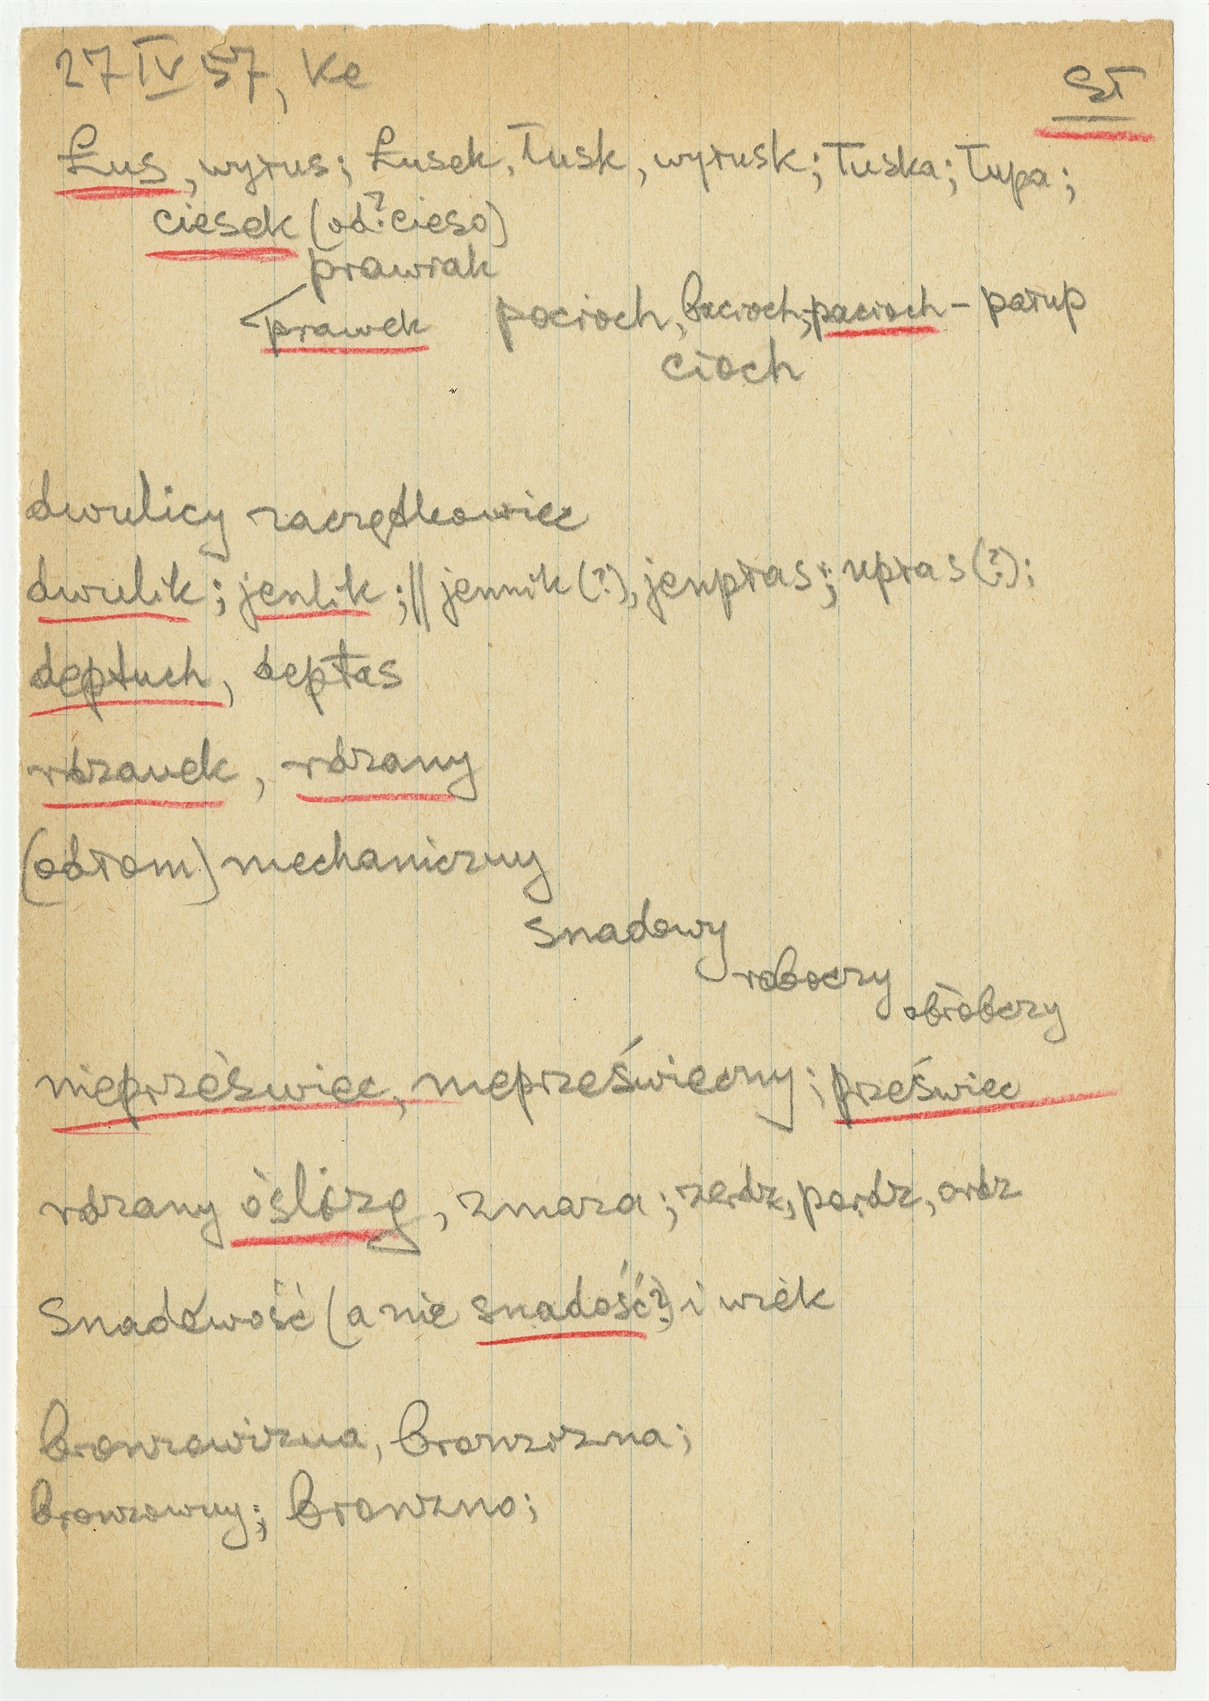 27 IV 57, Ke
SŁ
Łus, wyłus; Łusek, łusk, wyłusk; łuska; łupa;
ciesek (od? cieso)
prawiak
prawek pocioch, bacioch, pacioch – pałup
cioch
dwulicy zaczątkowiec
dwulik; jenlik; || jennik (?), jenpłas; upłas (?);
deptuch, deptas
rdzanek, rdzany
(odłom) mechaniczny
snadowy
roboczy
obróbczy
nieprzeświec, nieprześwieczny; przeświec
rdzany oślizg, zmaza;
Snadowość (a nie snadość?) i wiek
bronzowizna, bronzizna;
bronzowny; bronzno;